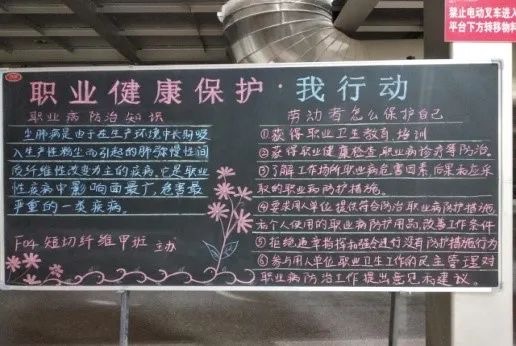 职业健康保护·我行动
职业病防治知识
尘肺病是由于在生产环境中长期吸
入生产性粉尘而引起的肺弥慢性间
质纤维性改变为主的疾病。它是职业
性疾病中影响面最广,危害最
严重的一类疾病。
F04短切纤维甲班 主办
劳动者怎么保护自己
①获得职业卫生教育培训
②获得职业健康检查,职业病诊疗等防治。
③了解工作场所职业病危害因素,后果和应采
取的职业病防护措施。
④要求用人单位提供符合防治职业病防护措施
和个人使用的职业病防护用品,改善工作条件
⑤拒绝违章指挥和强令进行没有防护措施行为
⑥参与用人单位职业卫生工作的民主管理对
职业病防治工作提出意见和建议。
禁止电动叉车进入
平台下方转移物料